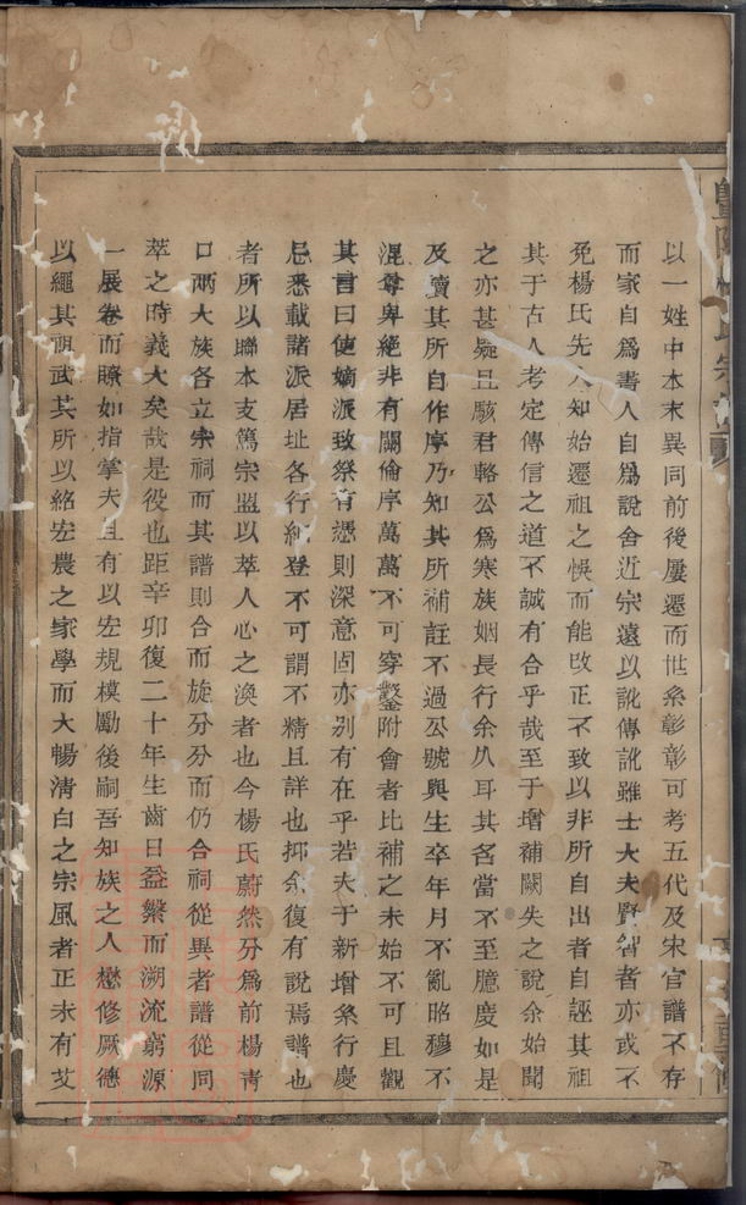 以一姓中本末異同前後屢遷而世系彰彰可考五代及宋官譜不存
而家自爲書人自爲說舍近宗遠以訛傳訛雖士大夫賢智者亦或不
免楊氏先人知始遷祖之悞而能改正不致以非所自出者自誣其祖
其于古人考定傳信之道不誠有合乎哉至于增補闕失之說余始聞
之亦甚疑且駭君輅公爲寒族姻長行余久耳其名當不至臆度如是
及讀其所自作序乃知其所補註不過公號與生卒年月不亂昭穆不
混尊卑絕非有關倫序萬萬不可穿鑿附會者比補之未始不可且觀
其言曰使嫡派致祭有憑則深意固亦別有在乎若夫于新增系行慶
忌悉載諸派居址各行細登不可謂不精且詳也抑余復有說焉譜也
者所以聯本支篤宗盟以萃人心之渙者也今楊氏蔚然分爲前楊靑
口兩大族各立宗祠而其譜則合而旋分分而仍合祠從異者譜從同
萃之時義大矣哉是役也距辛卯復二十年生齒日益繁而溯流窮源
一展卷而瞭如指掌夫且有以宏規模勵後嗣吾知族之人懋修厥德
以繩其祖武其所以紹宏農之家學而大暢清白之宗風者正未有艾